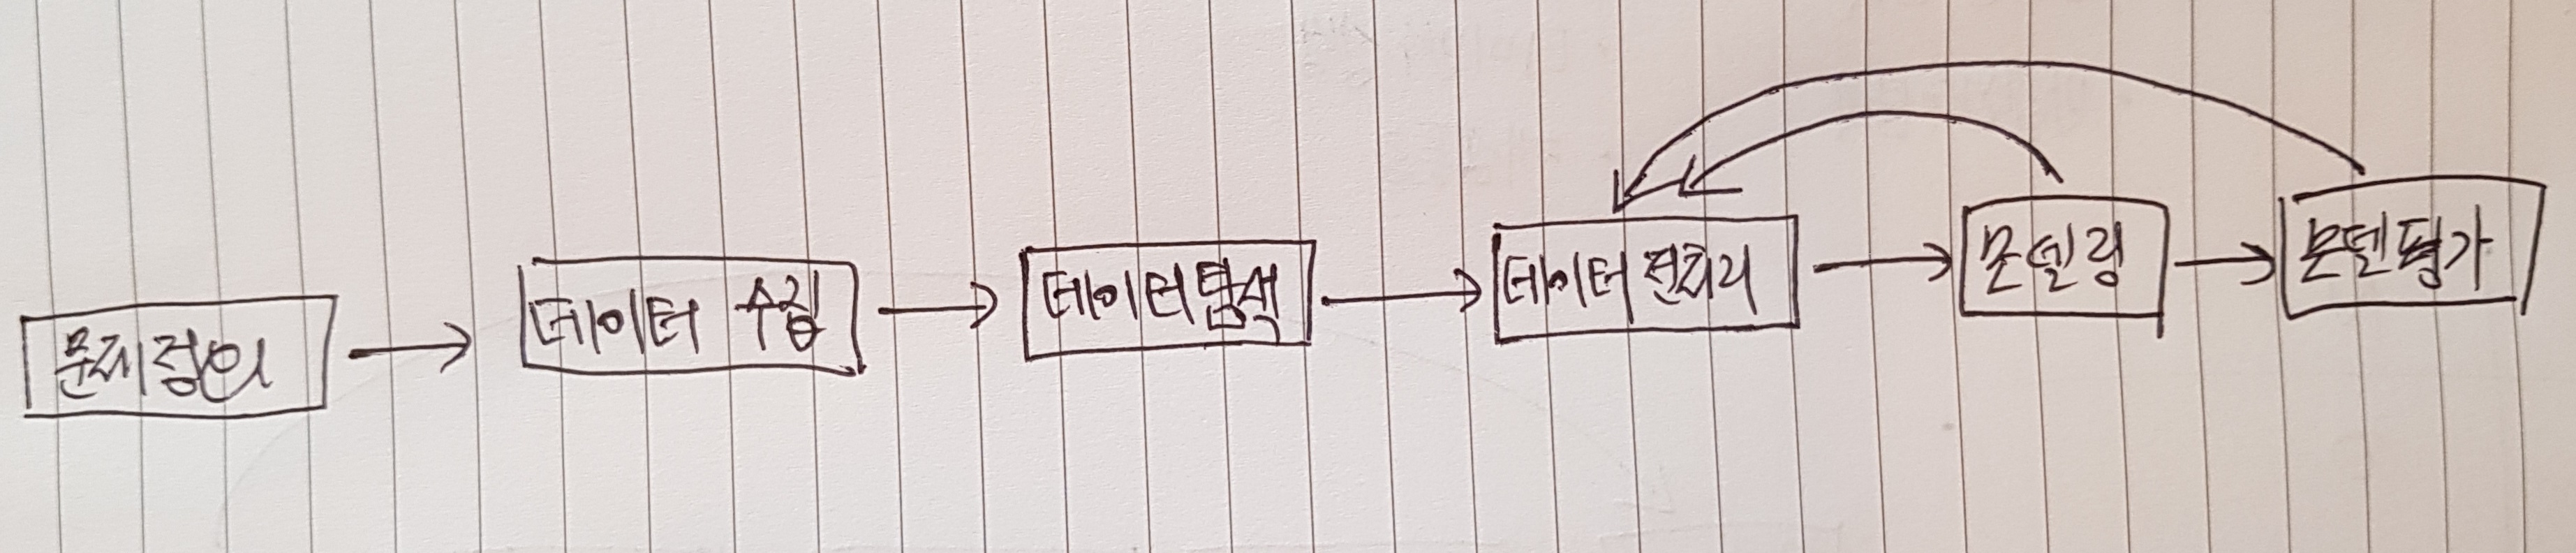 문제정의
데이터 수집
데이터탐색
데이터 전처리
모델링
모델평가